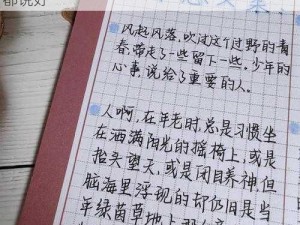 都说好
风起风落，吹过这个过野的青
春，带走了一些留下一些。少年的
心事，说给了重要的人。
人啊，在年老时，总是习惯坐
在洒满阳光的摇椅上，或是
抬头望天，或是闭目养神但
脑海里浮现的却仍旧是当
年绿茵草地上